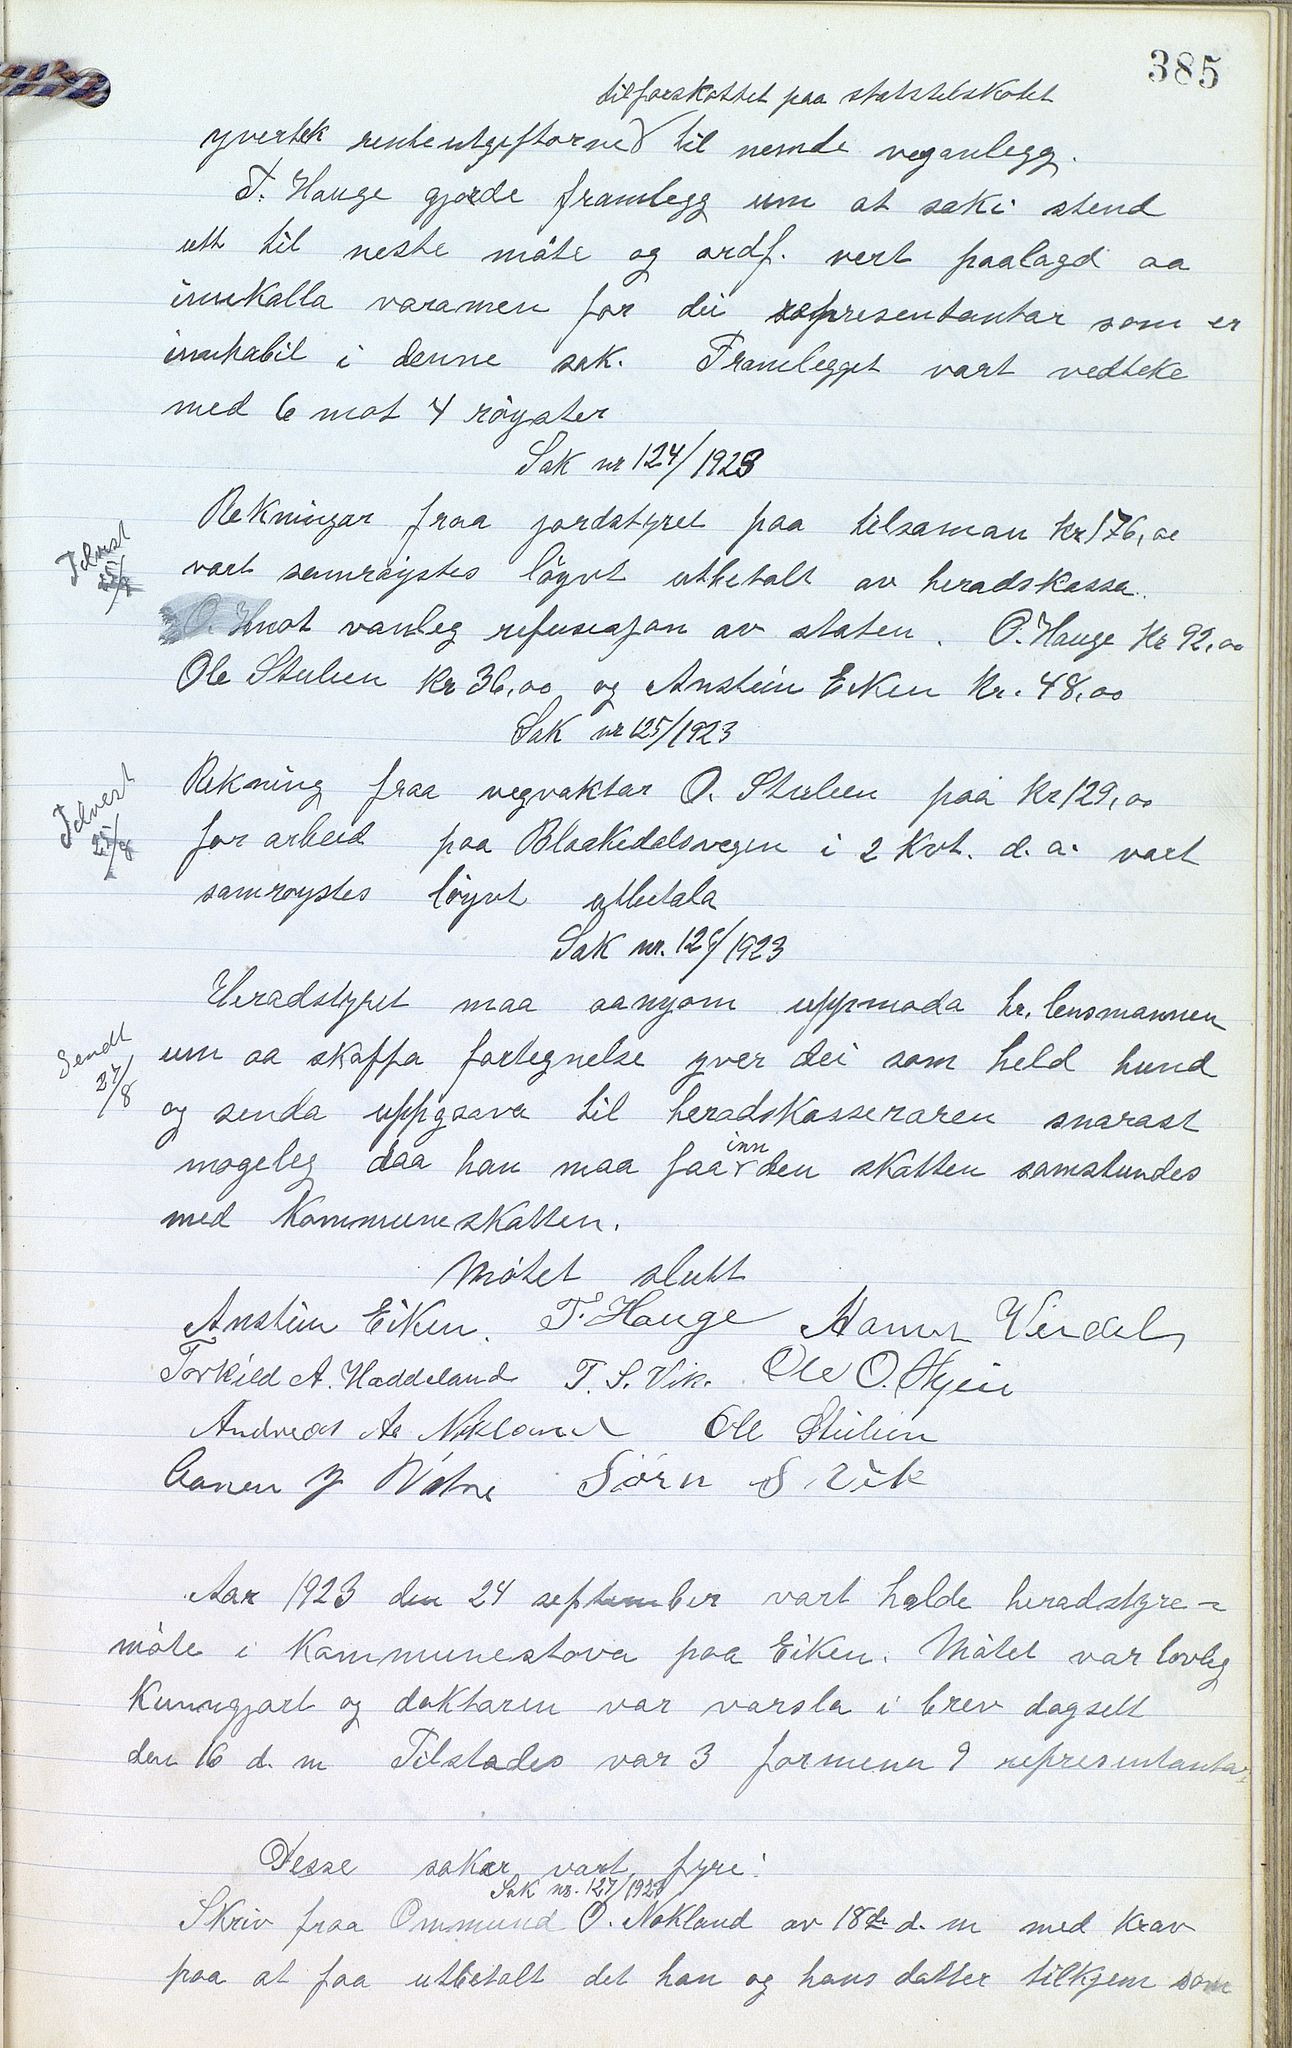 385
tilforskottet paa statstilskotet
yvertek renteutgiftorne til nemde veganlegg.
T. Hauge gjorde framlegg um at saki stend
utt til neste möte og ordf. vert paalagd aa
innkalla varamen for dei representantar som er
innhabil i denne sak. Framlegget vart vedteke
med 6 mot 4 röyster
Sak nr 124/1923
Rekningar fraa jordstyret paa tilsaman kr 176,00
vart samröystes löyvt utbetalt av heradskassa.
mot vanleg refusjon av staten. O. Hauge kr 92,00
Ole Stulien kr 36,00 og Anstein Eiken kr. 48,00
Sak nr 125/1923
Rekning fraa vegvaktar O. Stulien paa kr 129,00
25/8
for arbeid paa Blaakedalsvegen i 2 kvt. d. a. vart
samröystes löyvt utbetala
Sak nr. 126/1923
Heradstyret maa aanyom uppmoda hr. lensmannen
Sendt
27/8
um aa skaffa fortegnelse yver dei som held hund
og senda uppgaava til heradskasseraren snarast
mogeleg daa han maa faa inn den skatten samstundes
med kommuneskatten.
Mötet slutt
Anstein Eiken. T. Hauge Verdal
Torkild A. Haddeland T. S. Vik. Ole O. Skjeie
Andreas Aa Nokland Ole Stulien
Aanen J Votne Sörn S. Vik
Aar 1923 den 24 september vart halde heradstyre-
möte i kommunestova paa Eiken. Mötet var lovleg
kunngjort og doktaren var varsla i brev dagsett
den 16 d. m Tilstades var 3 formenn 9 representantar
Desse saker vart fyre:
Sak nr. 127/1923
Skriv fraa Ommund O. Nokland av 18de d. m med krav
paa at faa utbetalt det han og hans datter tilkjem som